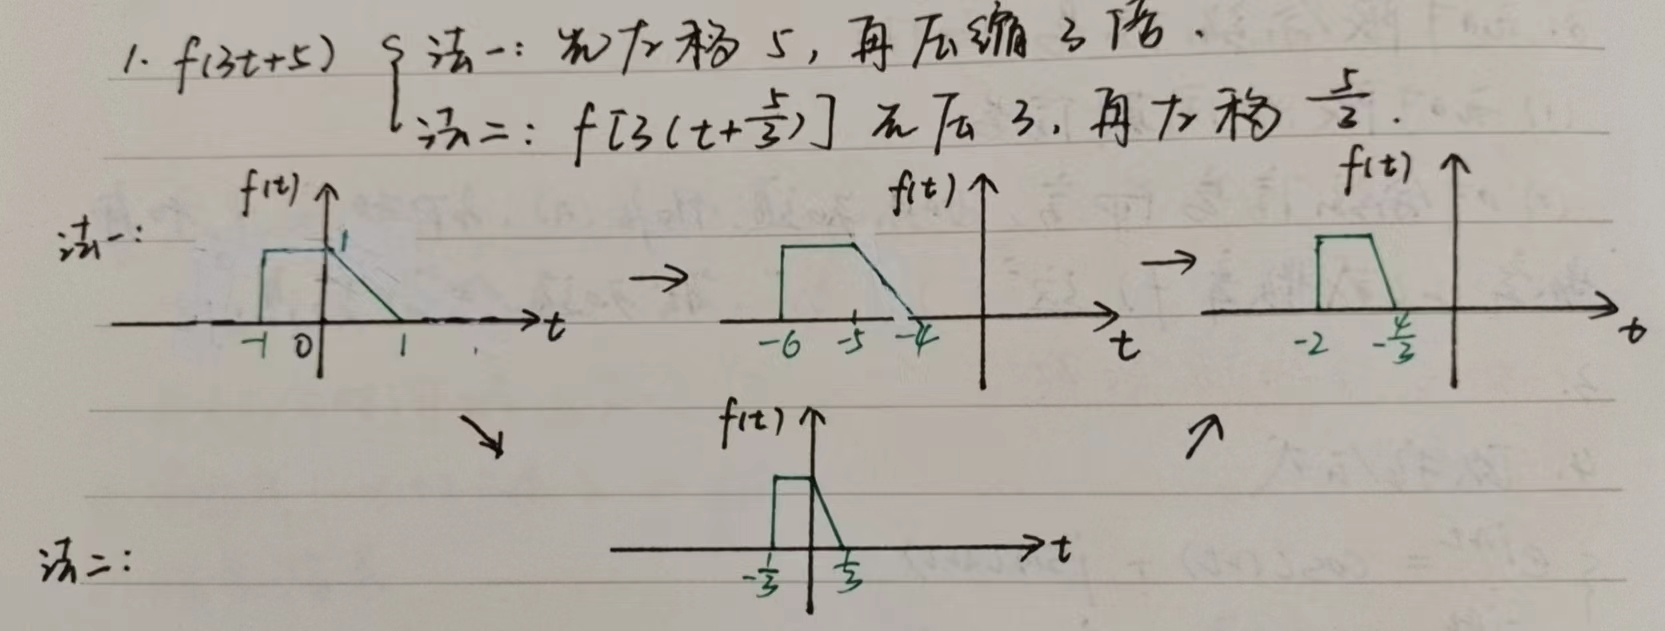 1. f(3t+5) { 法一: 先左移 5, 再压缩 3 倍.
法二: f[3(t+5/3)] 先压 3, 再左移 5/3.
法一:
f(t) 1 -1 0 1 t
f(t) -6 -5 -4 t
f(t) -2 -4/3 t
法二:
f(t) -1/3 1/3 t